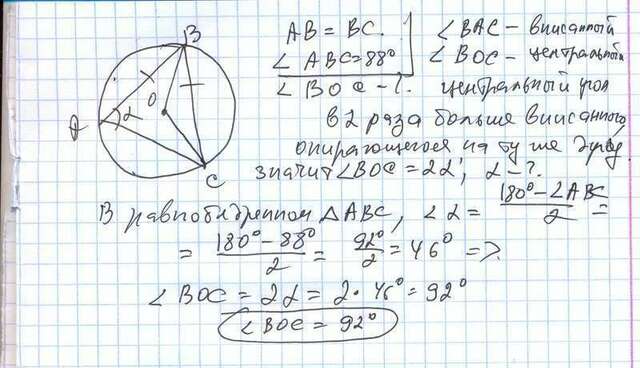 B
O
A
α
C
AB = BC.
∠ABC = 88°
∠BOC - ?
∠BAC - вписанный
∠BOC - центральный
центральный угол
в 2 раза больше вписанного
опирающегося на ту же дугу
значит ∠BOC = 2α; α - ?
В равнобедренном △ABC, ∠α = (180° - ∠ABC)/2 =
= (180° - 88°)/2 = 92°/2 = 46° =>
∠BOC = 2α = 2 · 46° = 92°
∠BOC = 92°